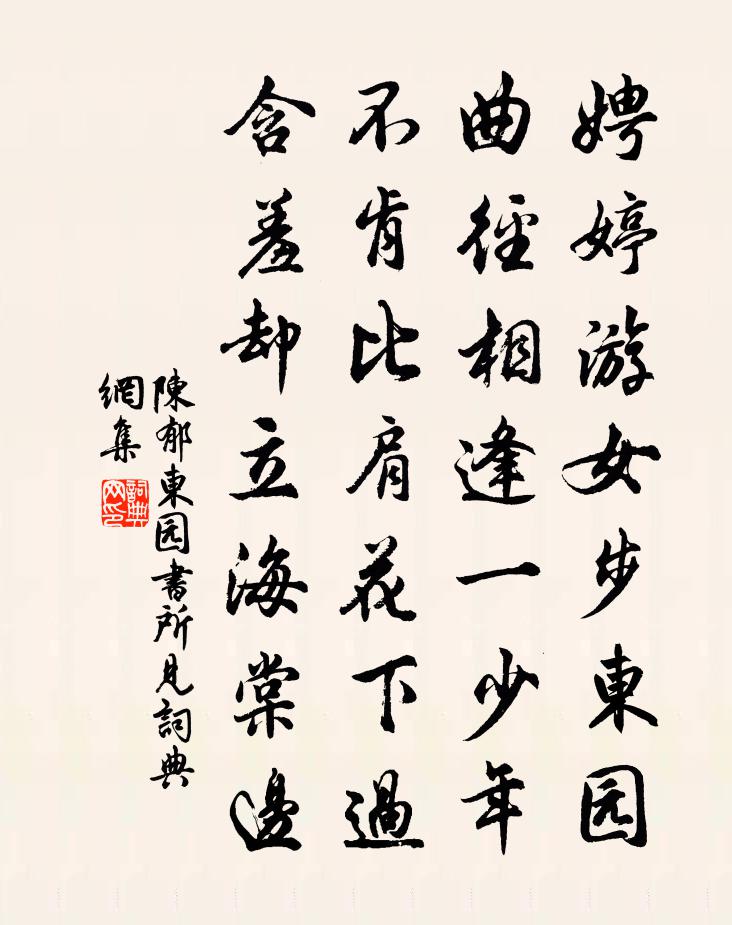 娉婷游女步東园
曲徑相逢一少年
不肯比肩花下過
含羞却立海棠邊
陳郁東园書所見詞典
網集
詞典
网印